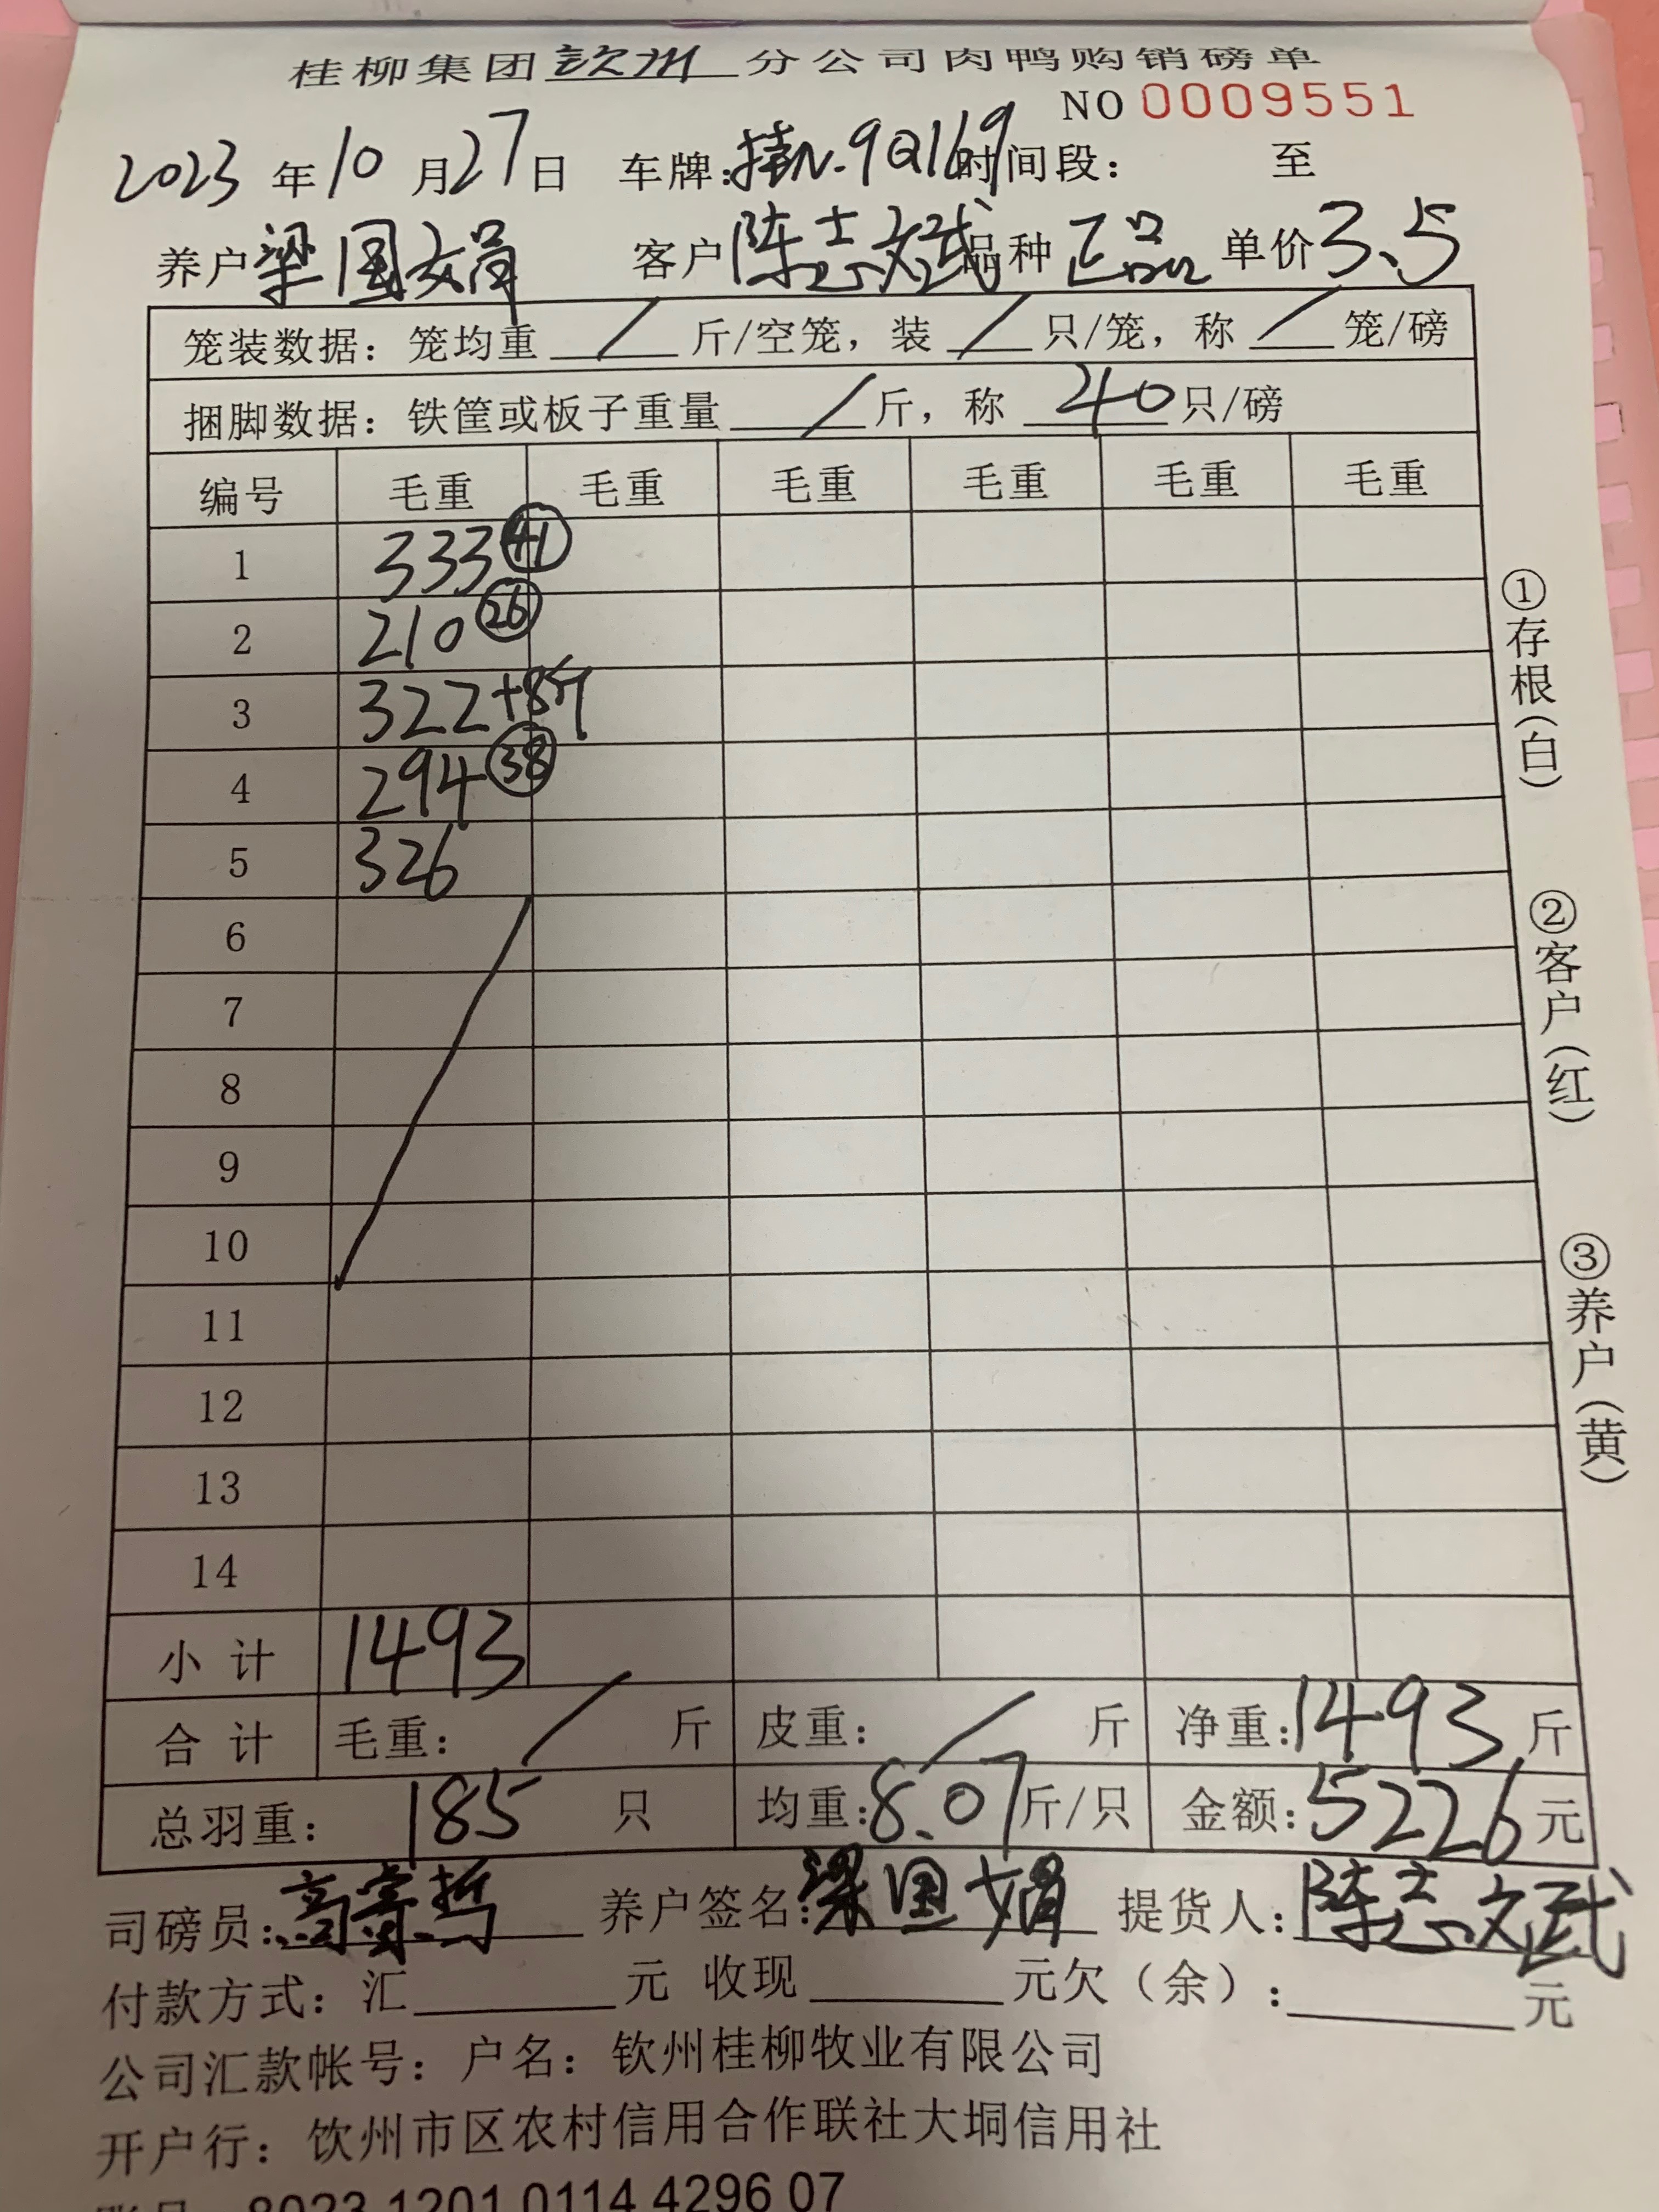 桂柳集团钦州分公司肉鸭购销磅单
NO 0009551
2023年10月27日 车牌:桂N.9Q169 时间段: 至
养户梁国娟 客户陈志斌 品种正品 单价3.5
笼装数据：笼均重 / 斤/空笼，装 / 只/笼，称 / 笼/磅
捆脚数据：铁筐或板子重量 / 斤，称 40 只/磅
编号 毛重 毛重 毛重 毛重 毛重 毛重
1 333 41
2 210 26
3 322+8斤
4 294 38
5 326
6
7
8
9
10
11
12
13
14
小计 1493
合计 毛重： / 斤 皮重： / 斤 净重：1493 斤
总羽重： 185 只 均重：8.07斤/只 金额：5226元
司磅员：高 哲 养户签名：梁国娟 提货人：陈志斌
付款方式：汇 元 收现 元欠（余）： 元
公司汇款帐号：户名：钦州桂柳牧业有限公司
开户行：钦州市区农村信用合作联社大垌信用社
8023 1201 0114 4296 07
①存根（白）
②客户（红）
③养户（黄）